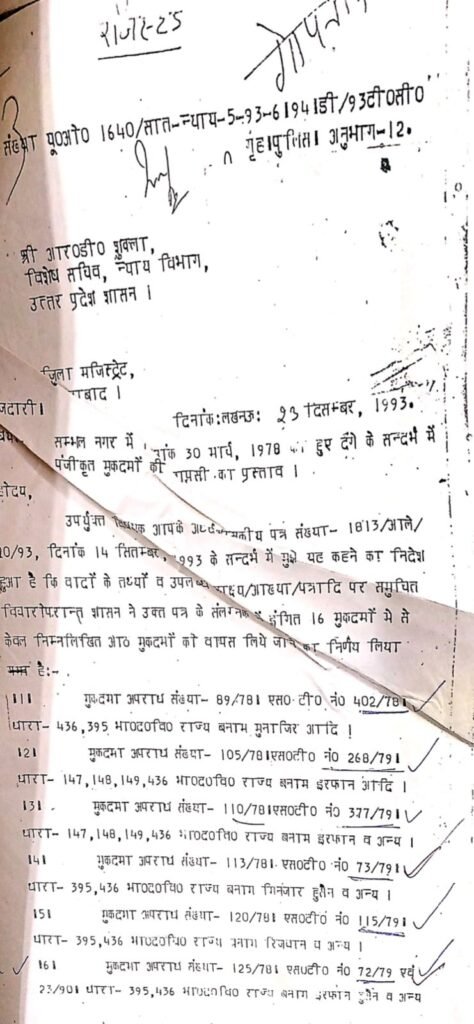 राजस्टर्ड
गोपनीय
संख्या यू०ओ० 1640/सात-न्याय-5-93-6।94।डी/93टी०सी०
गृह।पुलिस। अनुभाग-12.
श्री आर०डी० शुक्ला,
विशेष सचिव, न्याय विभाग,
उत्तर प्रदेश शासन ।
जिला मजिस्ट्रेट,
बाद ।
दिनांक:लखनऊ: 23 दिसम्बर, 1993.
सम्भल नगर में 30 मार्च, 1978 हुए दंगे के सन्दर्भ में
पंजीकृत मुकदमों की का प्रस्ताव ।
होदय,
उपर्युक्त आपके पत्र संख्या- 1813/आले/
10/93, दिनांक 14 सितम्बर, 1993 के सन्दर्भ में मुझे यह कहने का निदेश
हुआ है कि वादों के तथ्यों व साक्ष्य/आख्या/पत्रादि पर समुचित
विचारोपरान्त शासन ने उक्त पत्र के संलग्नक में इंगित 16 मुकदमों मे से
केवल निम्नलिखित आठ मुकदमों को वापस लिये जाने का निर्णय लिया
है:-
।1। मुकदमा अपराध संख्या- 89/78। एस० टी० नं० 402/78।
धारा- 436,395 भा०द०वि० राज्य बनाम मुनाजिर आदि ।
।2। मुकदमा अपराध संख्या- 105/78।एस०टी० नं० 268/79।
धारा- 147,148,149,436 भा०द०वि० राज्य बनाम इरफान आदि ।
।3। मुकदमा अपराध संख्या- 110/78।एस०टी० नं० 377/79।
धारा- 147,148,149,436 भा०द०वि० राज्य बनाम इरफान व अन्य ।
।4। मुकदमा अपराध संख्या- 113/78। एस०टी० नं० 73/79।
धारा- 395,436 भा०द०वि० राज्य बनाम मिनजार हुसैन व अन्य ।
।5। मुकदमा अपराध संख्या- 120/78। एस०टी० नं० 115/79।
धारा- 395,436 भा०द०वि० राज्य बनाम रिजवान व अन्य ।
।6। मुकदमा अपराध संख्या- 125/78। एस०टी० नं० 72/79 एवं
23/90। धारा- 395,436 भा०द०वि० राज्य बनाम इरफान हुसैन व अन्य